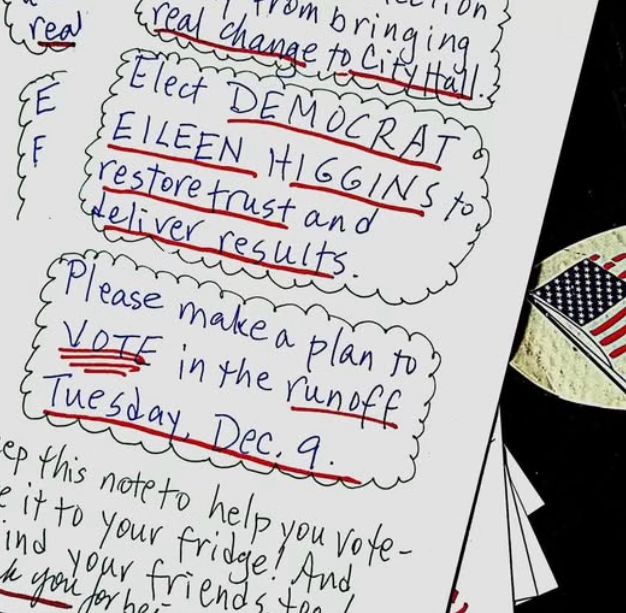 from bringing
real change to City Hall.
real
E
F
Elect DEMOCRAT
EILEEN HIGGINS to
restore trust and
deliver results.
Please make a plan to
VOTE in the runoff
Tuesday, Dec. 9.
this note to help you vote-
it to your fridge! And
your friends too!
you for